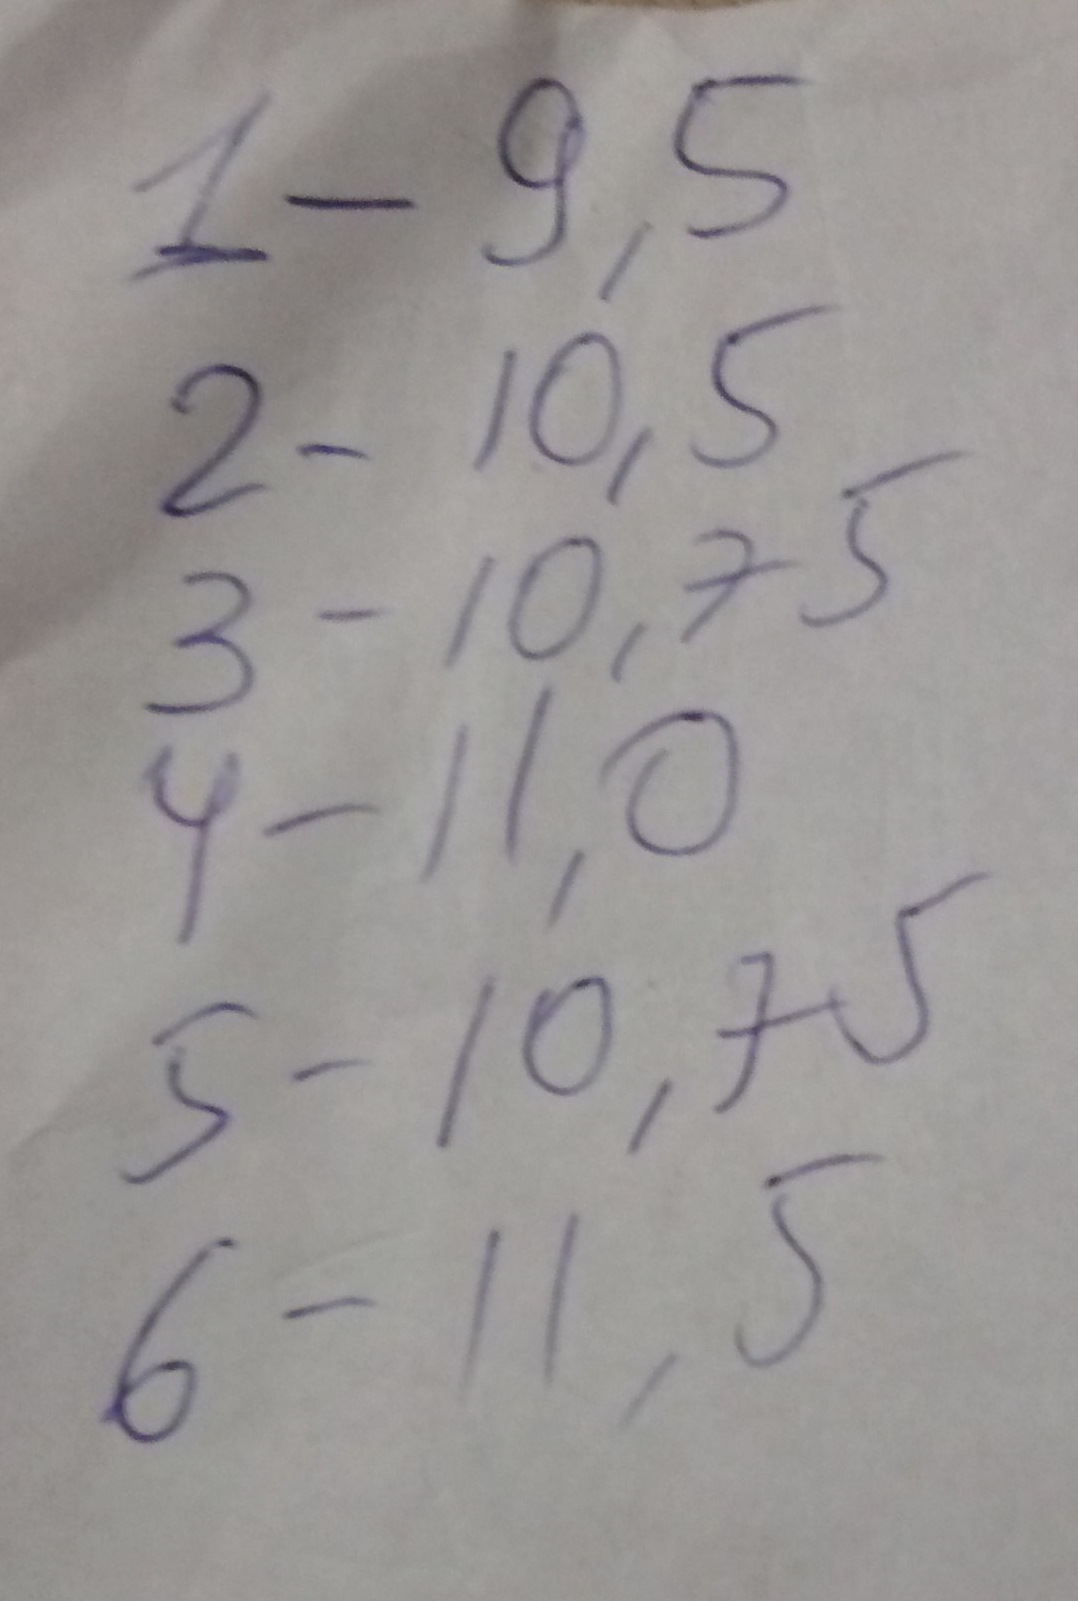 1 - 9,5
2 - 10,5
3 - 10,75
4 - 11,0
5 - 10,75
6 - 11,5